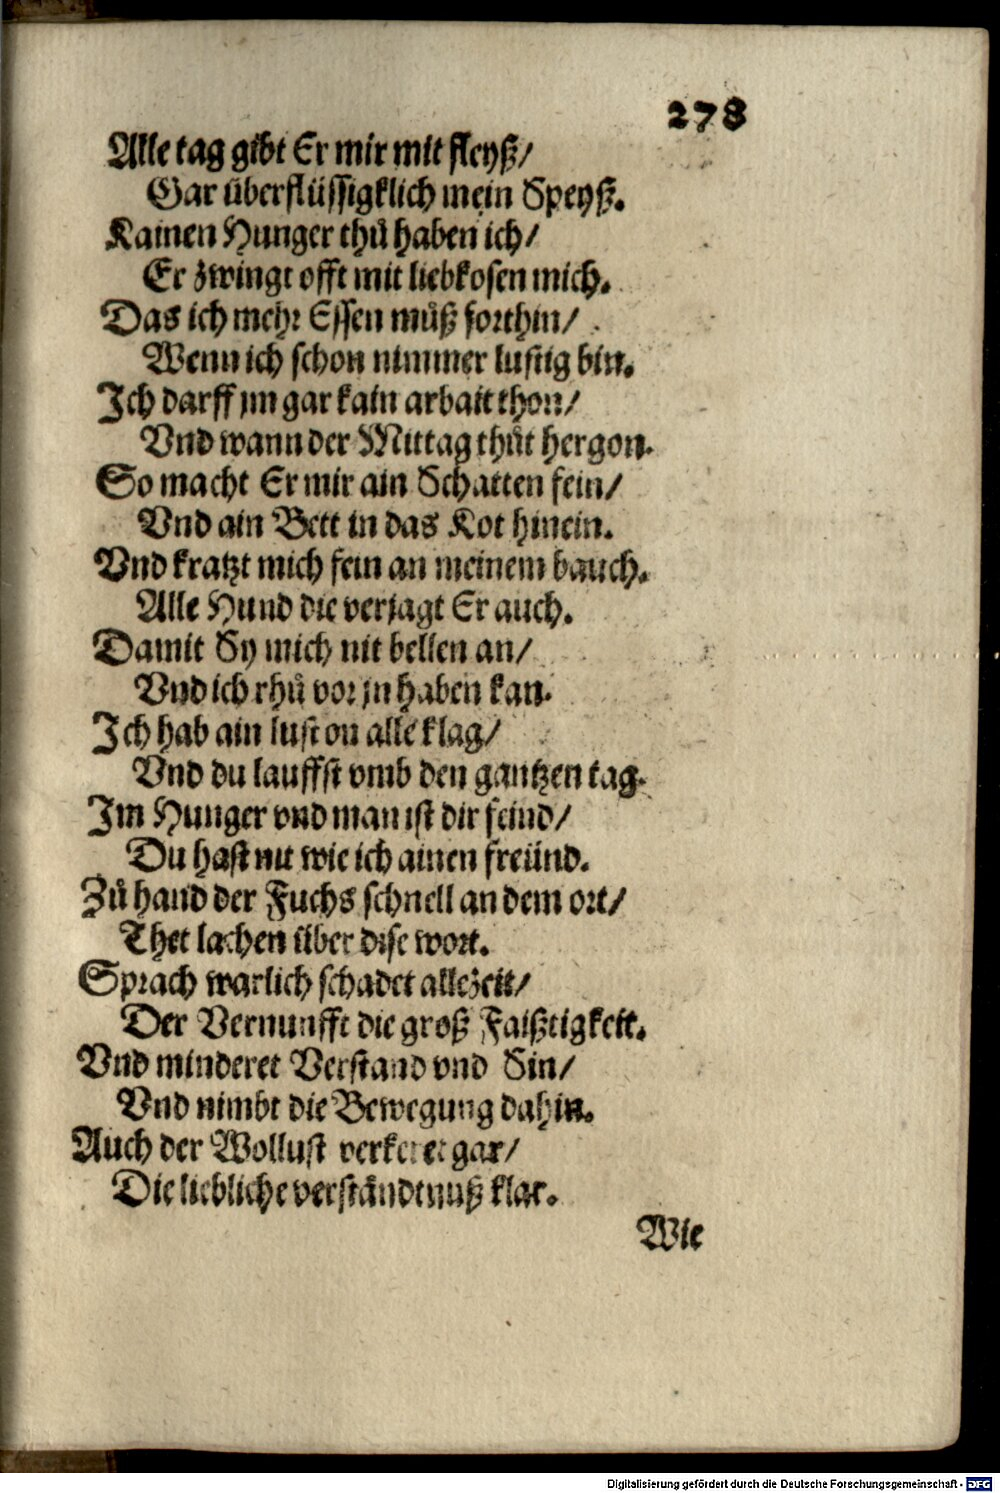 278
Alle tag gibt Er mir mit fleyß/
Gar überflüssigklich mein Speyß.
Kainen Hunger thuͦ haben ich/
Er zwingt offt mit liebkosen mich.
Das ich mehr Essen muͦß forthin/
Wenn ich schon nimmer lustig bin.
Ich darff jm gar kain arbait thon/
Vnd wann der Mittag thuͦt hergon.
So macht Er mir ain Schatten fein/
Vnd ain Bett in das Kot hinein.
Vnd kratzt mich fein an meinem bauch.
Alle Hund die verjagt Er auch.
Damit Sy mich nit bellen an/
Vnd ich rhuͦ vor jn haben kan.
Ich hab ain lust on alle klag/
Vnd du lauffst vmb den gantzen tag.
Im Hunger vnd man ist dir feind/
Du hast nit wie ich ainen freünd.
Zuͦ hand der Fuchs schnell an dem ort/
Thet lachen über dise wort.
Sprach warlich schadet allezeit/
Der Vernunfft die groß Faißtigkeit.
Vnd minderet Verstand vnd Sin/
Vnd nimbt die Bewegung dahin.
Auch der Wollust verkeret gar/
Die liebliche verständtnuß klar.
Wie
Digitalisierung gefördert durch die Deutsche Forschungsgemeinschaft - DFG